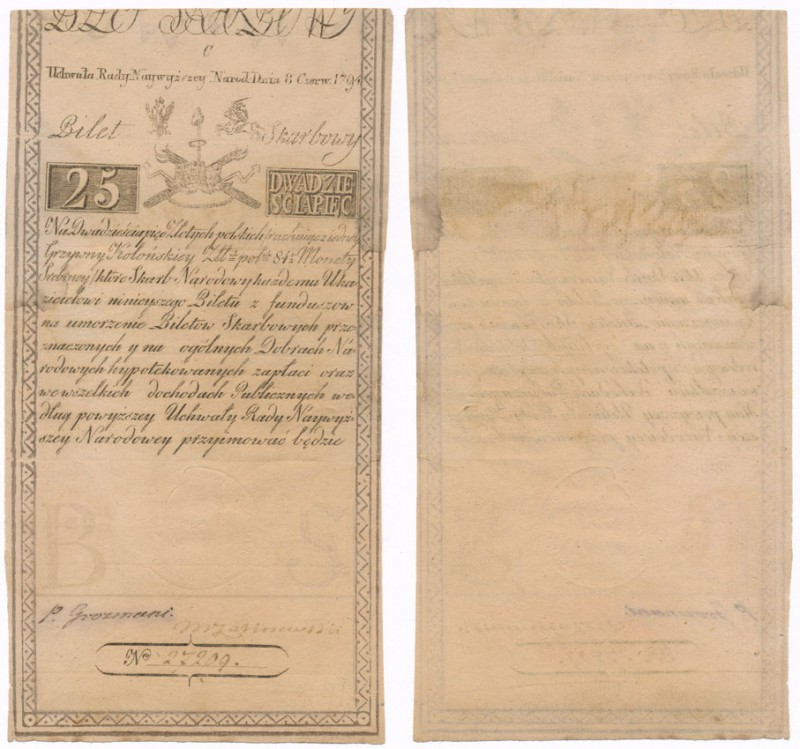 BILET SKARBOWY
C
Uchwała Rady Naywyższey Narod: Dnia 8 Czerw. 1794
Bilet Skarbowy
25 DWADZIE
ŚCIAPIĘC
Na Dwadzieściapięć Złotych polskich rachuiąc z iedney
Grzywny Kolońskiey Złł: pol: 84½ Monety
Srebrney / które Skarb Narodowy każdemu Uka
zicielowi ninieyszego Biletu z funduszow
na umorzenie Biletów Skarbowych prze
znaczonych y na ogólnych Dobrach Na:
rodowych hypotekowanych zapłaci oraz
we wszelkich dochodach Publicznych we:
dług powyższey Uchwały Rady Naywyż:
szey Narodowey przyimować będzie
B S
P. Grozmani.
Nº 27209.